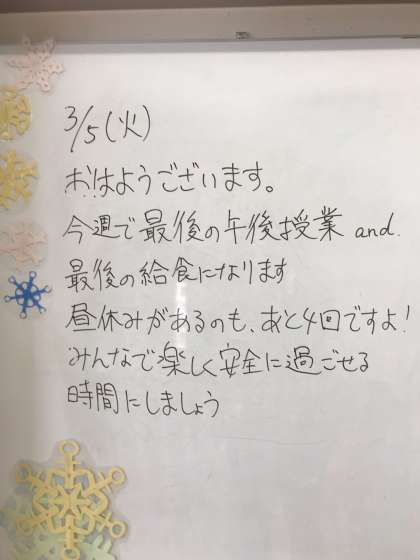 3/5(火)
おはようございます。
今週で最後の午後授業 and.
最後の給食になります
昼休みがあるのも、あと4回ですよ!
みんなで楽しく安全に過ごせる
時間にしましょう